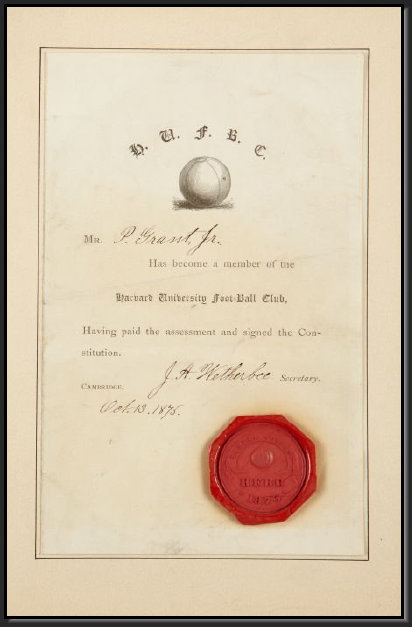 H. U. F. B. C.
Mr. P. Grant, Jr.
Has become a member of the
Harvard University Foot-Ball Club,
Having paid the assessment and signed the Con-
stitution.
J. A. Wetherbee Secretary.
Cambridge,
Oct. 13. 1875.